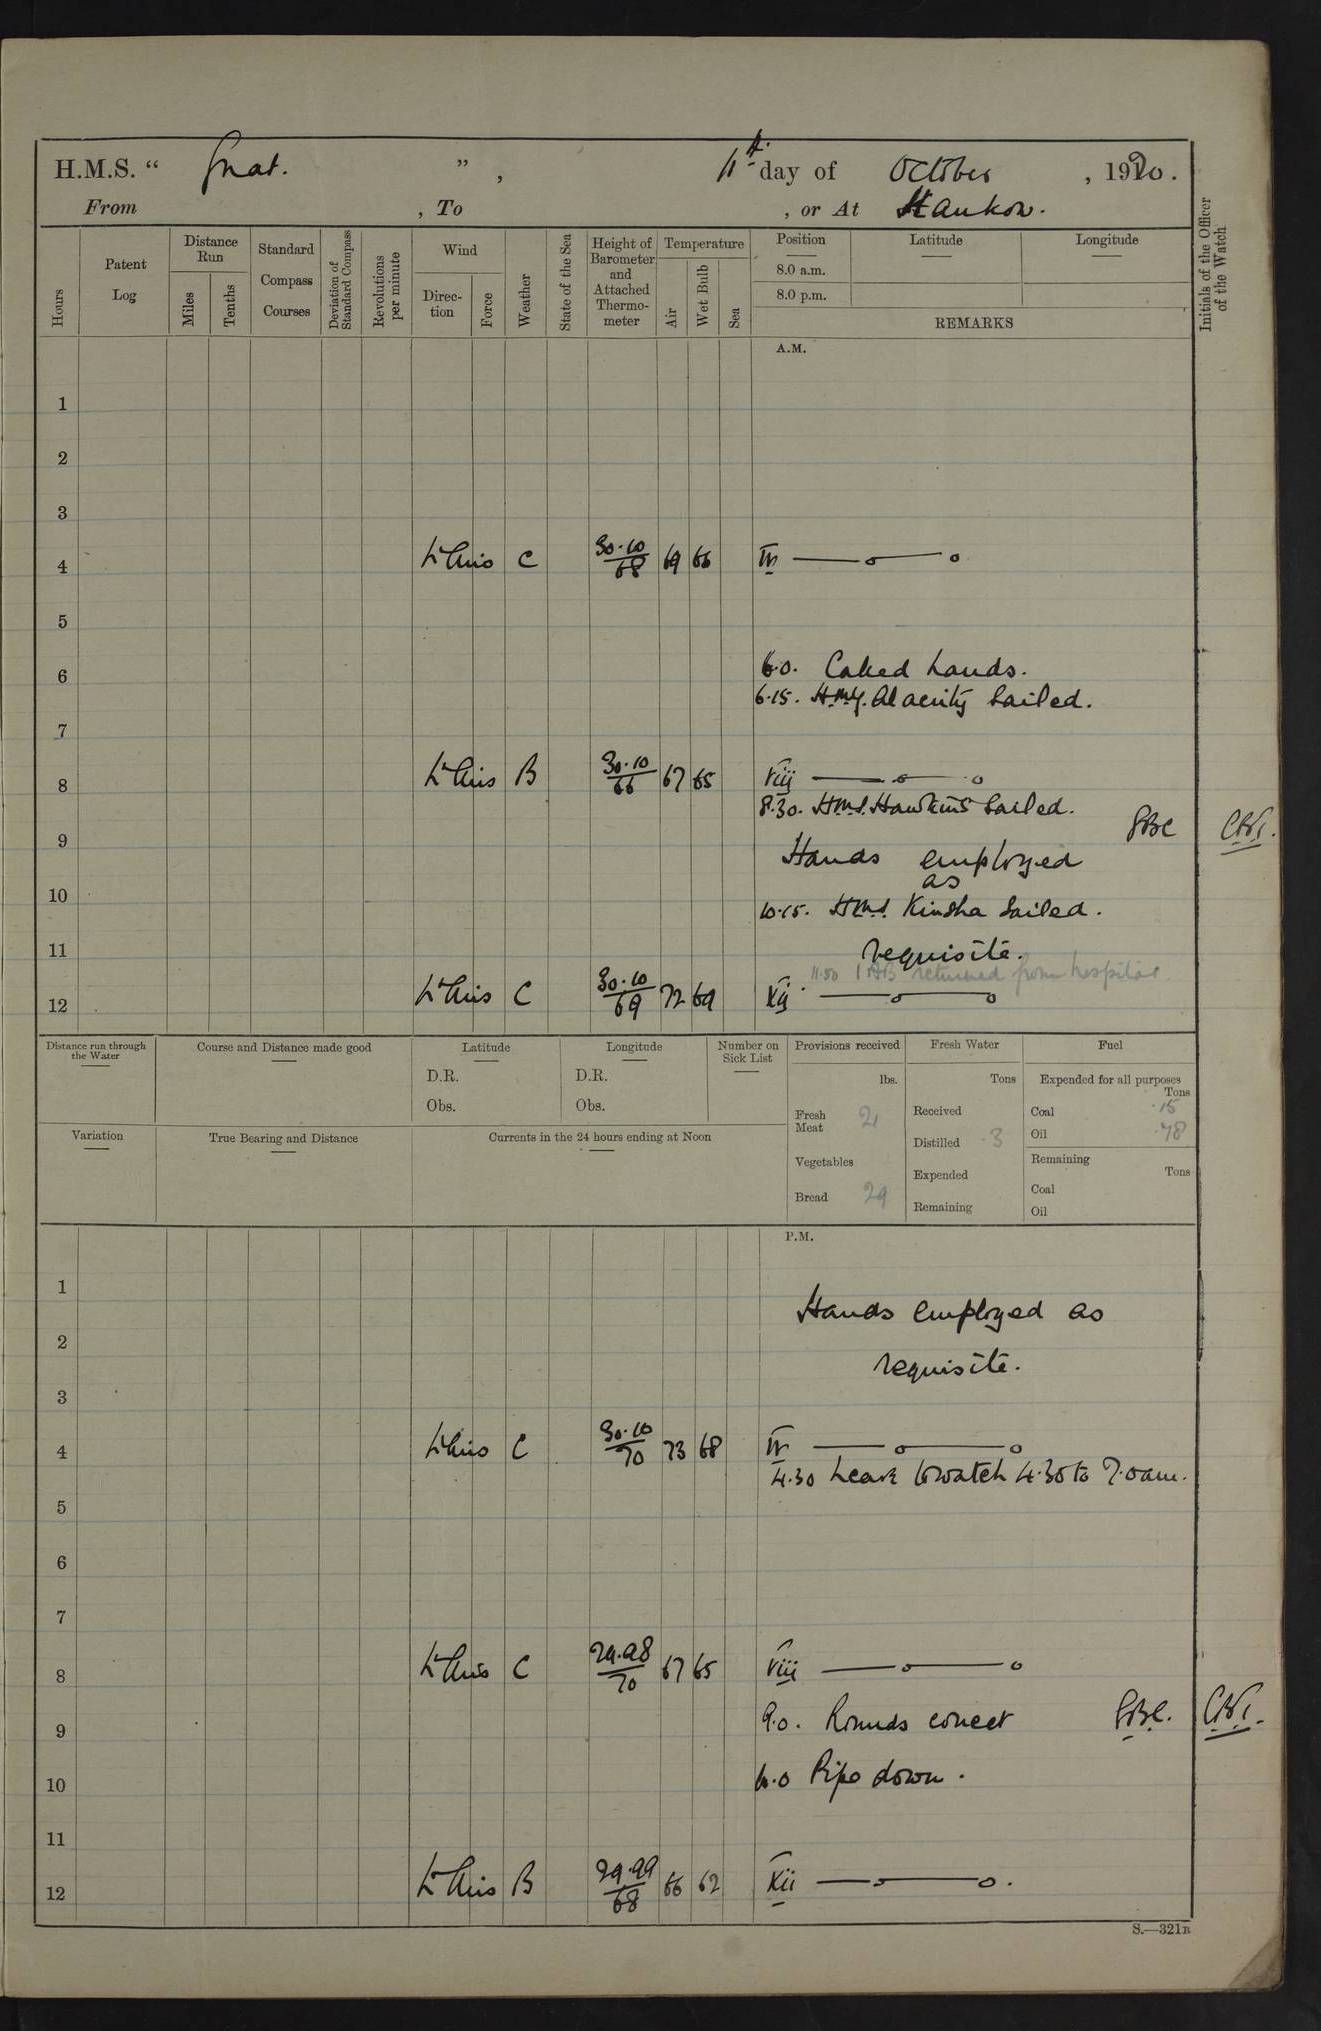 H.M.S. “ Gnat. ” , 11th day of October , 1920.
From , To , or At Hankow.
Hours
Patent Log
Distance Run
Miles
Tenths
Standard Compass Courses
Deviation of Standard Compass
Revolutions per minute
Wind
Direction
Force
Weather
State of the Sea
Height of Barometer and Attached Thermometer
Temperature
Air
Wet Bulb
Sea
Position
8.0 a.m.
8.0 p.m.
Latitude
Longitude
REMARKS
Initials of the Officer of the Watch
A.M.
1
2
3
4 Lt Airs C 30.10/68 69 66 IV
5
6 6.0. Called hands.
6.15. H.M.Y. Alacrity Sailed.
7
8 Lt Airs B 30.10/66 67 65 VIII
8.30. H.M.S. Hawkins Sailed.
9
Hands employed
as
10
10.15. H.M.S. Kinsha Sailed.
11 requisite.
11.50 1 AB returned from hospital
12 Lt Airs C 30.10/69 72 69 XII
Distance run through the Water
Course and Distance made good
Latitude
D.R.
Obs.
Longitude
D.R.
Obs.
Number on Sick List
Provisions received
lbs.
Fresh Meat 21
Vegetables
Bread 29
Fresh Water
Tons
Received
Distilled 3
Expended
Remaining
Fuel
Expended for all purposes
Tons
Coal .15
Oil .78
Remaining
Tons
Coal
Oil
Variation
True Bearing and Distance
Currents in the 24 hours ending at Noon
P.M.
1 Hands employed as
2 requisite.
3
4 Lt Airs C 30.10/70 73 68 IV
4.30 Leave to watch 4.30 to 7.0 am.
5
6
7
8 Lt Airs C 29.98/70 67 65 VIII
9 9.0. Rounds correct
10 10.0 Pipe down.
11
12 Lt Airs B 29.99/68 66 62 XII
S.—321B